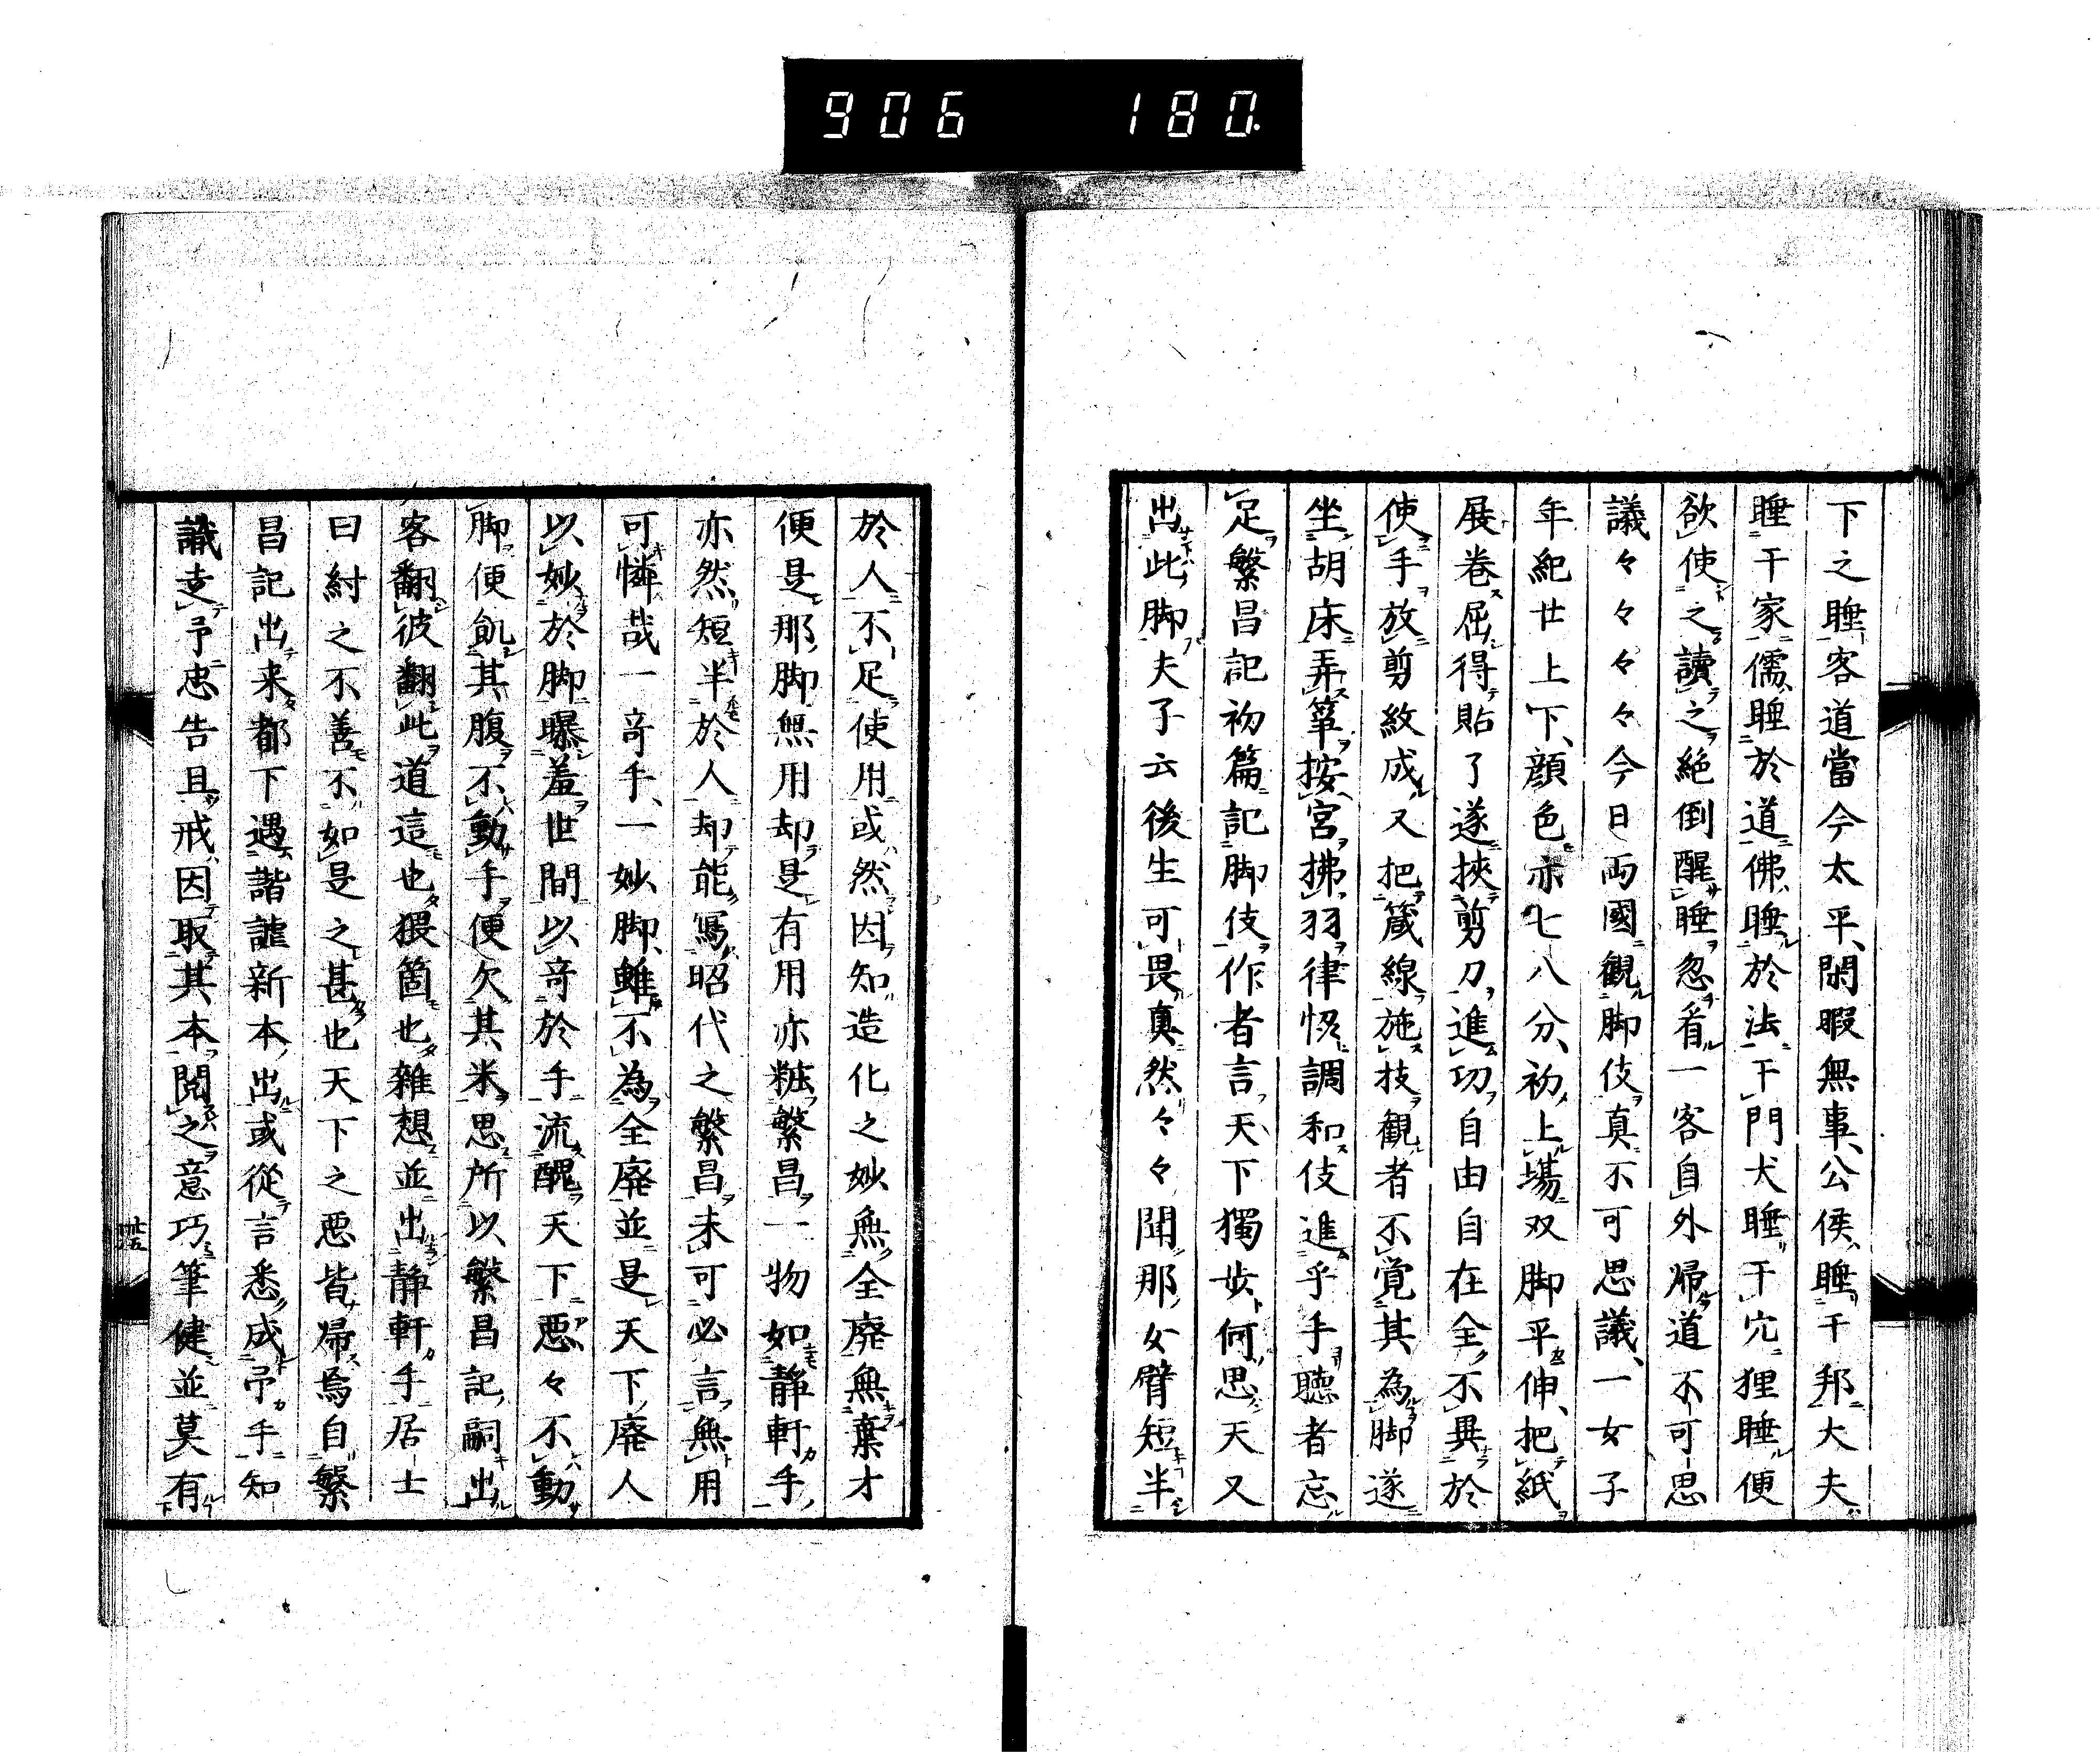 906 180
下之睡客道當今太平閑暇無事公侯睡于邦大夫
睡于家儒睡於道佛睡於法于門犬睡于穴狸睡便
欲使之讀之絶倒醒睡忽看一客自外帰道不可思
議々々々々今日両國観脚伎真不可思議一女子
年紀廿上下顔色亦七八分初上場双脚平伸把紙
展巻屈得貼了遂挾剪刀進功自由自在全不異於
使手放剪紋成又把箴線施技観者不覚其為脚遂
坐胡床弄箏按宮拂羽律恊調和伎進乎手聴者忘
足繁昌記初篇記脚伎作者言天下獨歩何思天又
出此脚夫子云後生可畏真然々々聞那女臂短半
於人不足使用或然因知造化之妙無全廃無棄才
便是那脚無用却是有用亦粧繁昌一物如静軒手
亦然短半於人却能寫昭代之繁昌未可必言無用
可憐哉一竒手一妙脚雖不為全廃並是天下廃人
以妙於脚曝羞世間以竒於手流醜天下悪々不動
脚便飢其腹不動手便欠其米思所以繁昌記嗣出
客翻彼翻此道這也猥箇也雑想並出静軒手居士
曰紂之不善不如是之甚也天下之悪皆帰焉自繁
昌記出来都下遇諧謔新本出或從言悉成予手知
識支予忠告且戒因取其本閲之意巧筆健並莫有
廿五